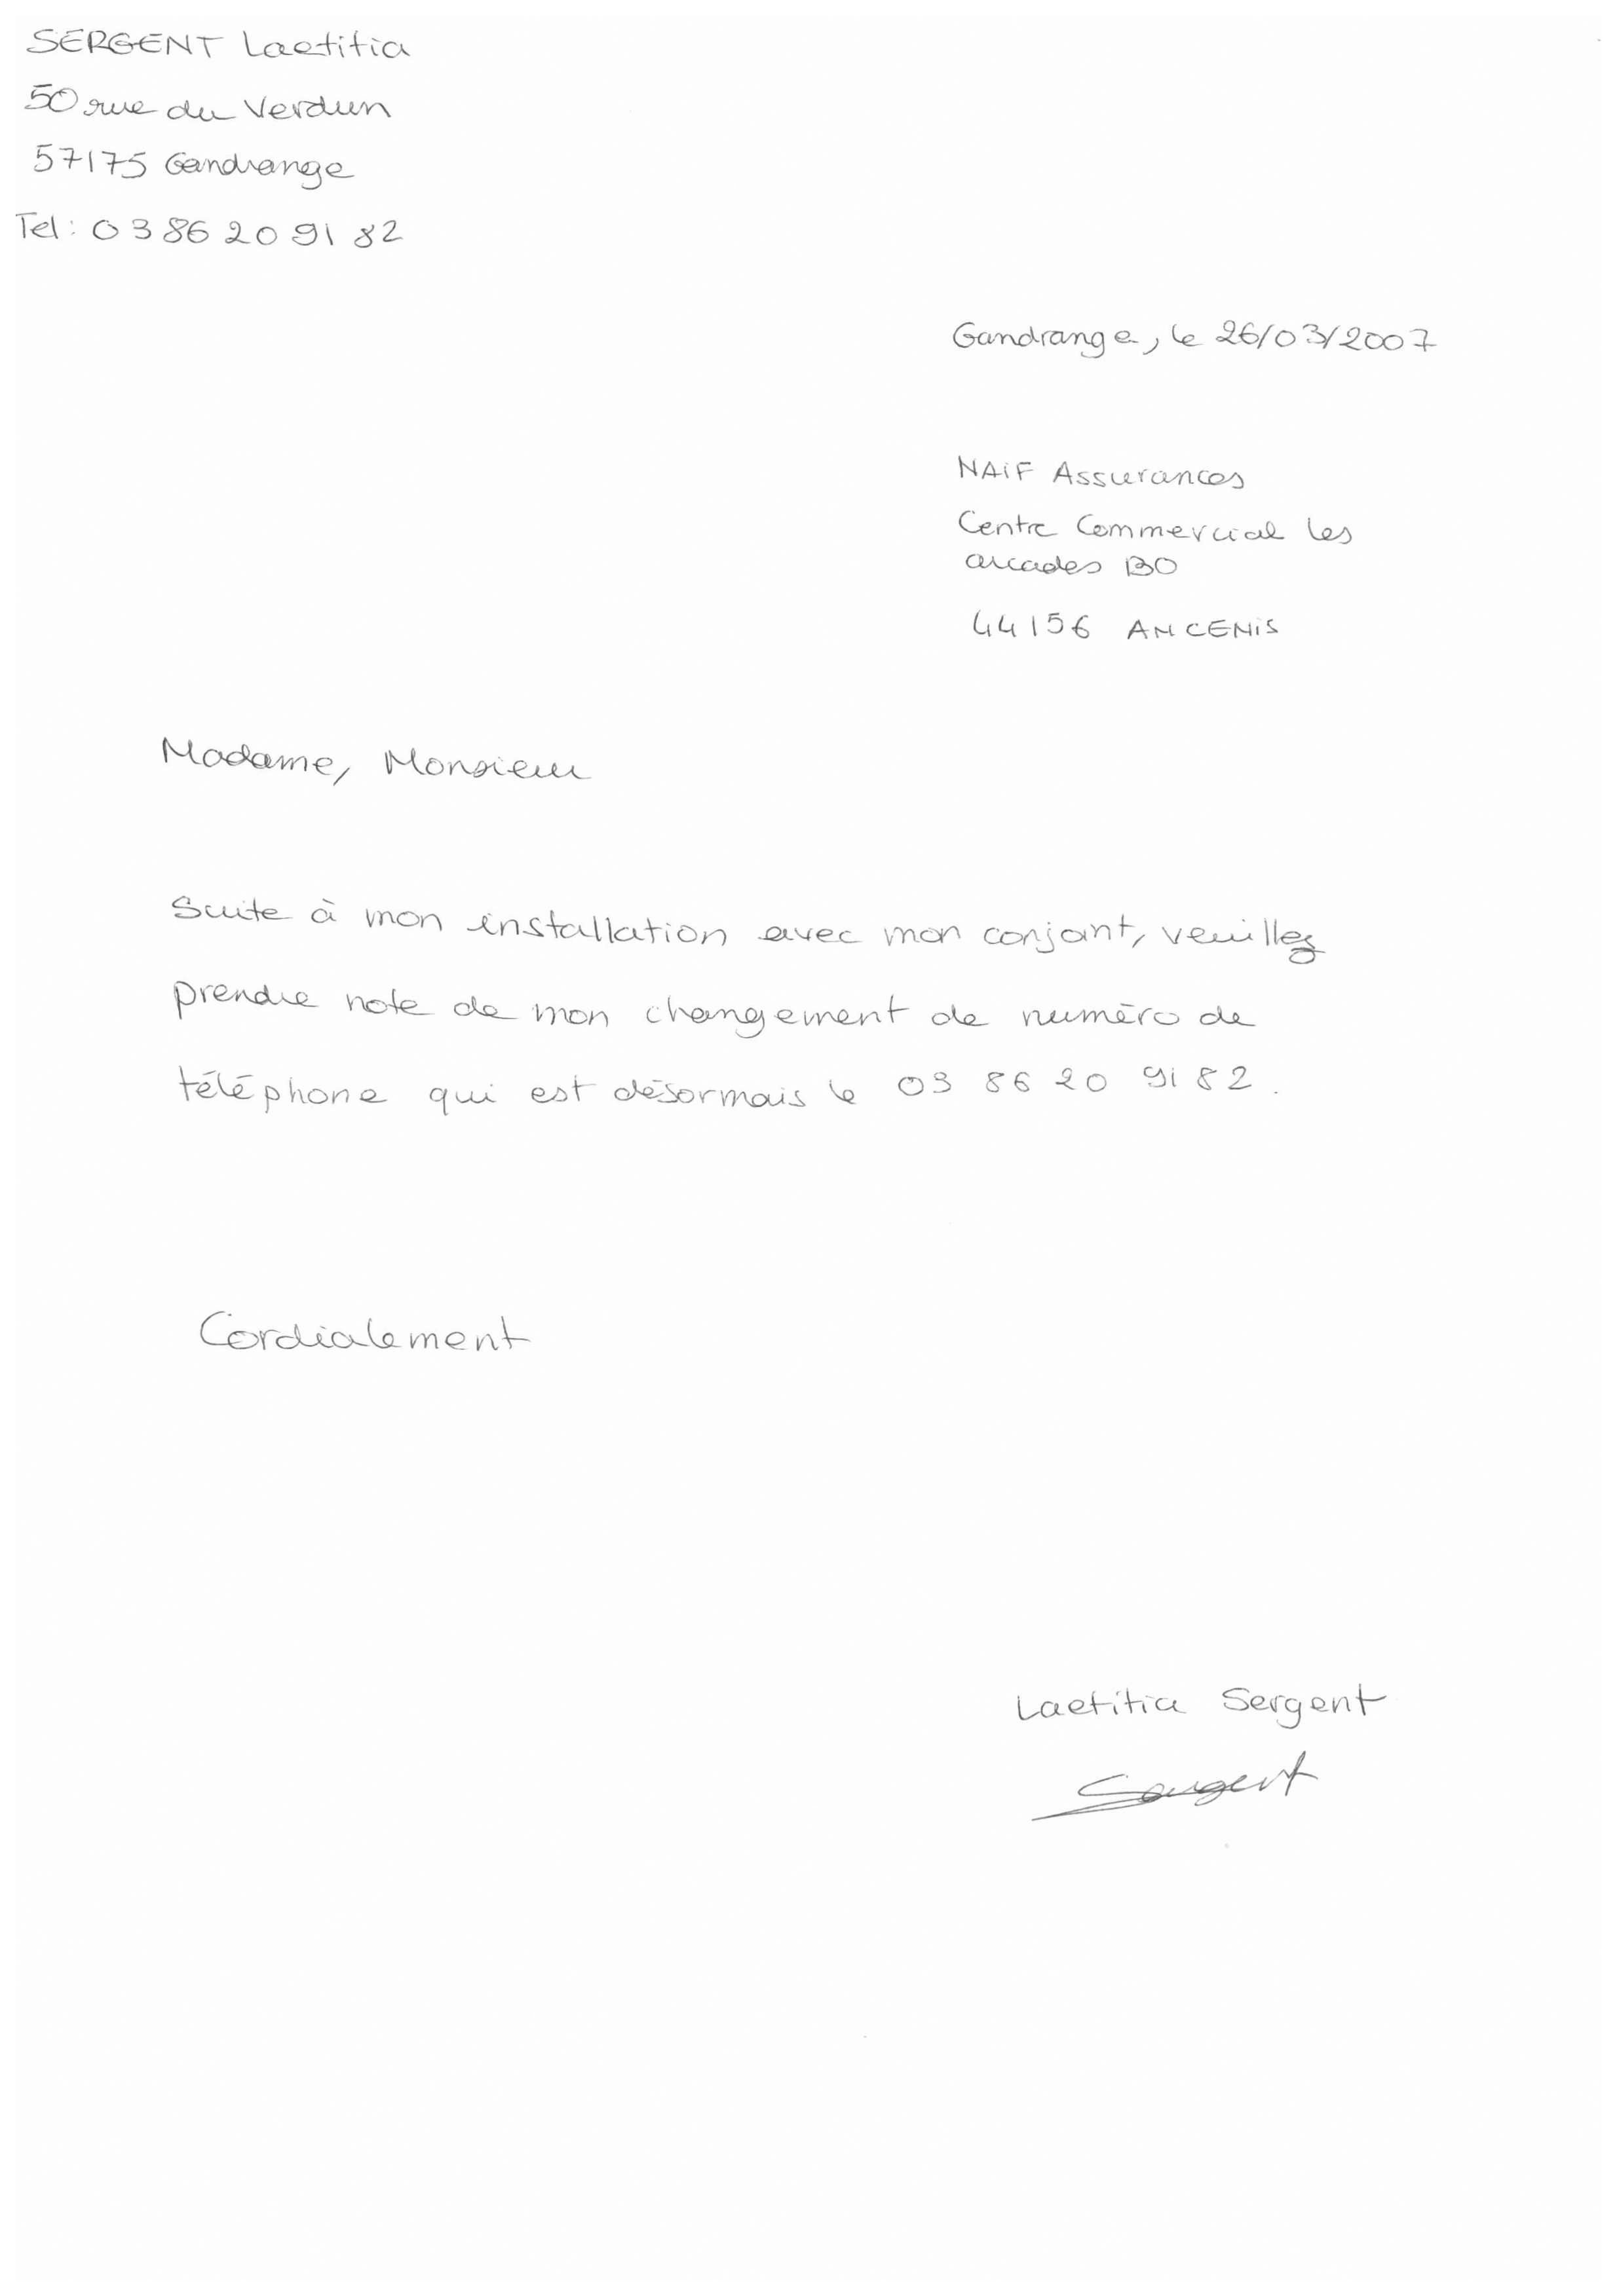 SERGENT Laetitia
50 rue du Verdun
57175 Gandrange
Tel : 03 86 20 91 82
Gandrange, le 26/03/2007
NAiF Assurances
Centre Commercial les
arcades BO
44156 ANCENiS
Madame, Monsieur
Suite à mon installation avec mon conjoint, veuillez
prendre note de mon changement de numéro de
téléphone qui est désormais le 03 86 20 91 82.
Cordialement
Laetitia Sergent
Sergent